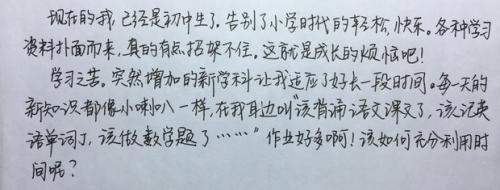 现在的我,已经是初中生了.告别了小学时代的轻松,快乐。各种学习
资料扑面而来,真的有点招架不住。这就是成长的烦恼吧!
学习之苦。突然增加的新学科让我适应了好长一段时间。每一天的
新知识都像小喇叭一样,在我身边叫“该背诵语文课文了,该记英
语单词了,该做数学题了……”作业好多啊!该如何充分利用时
间呢?